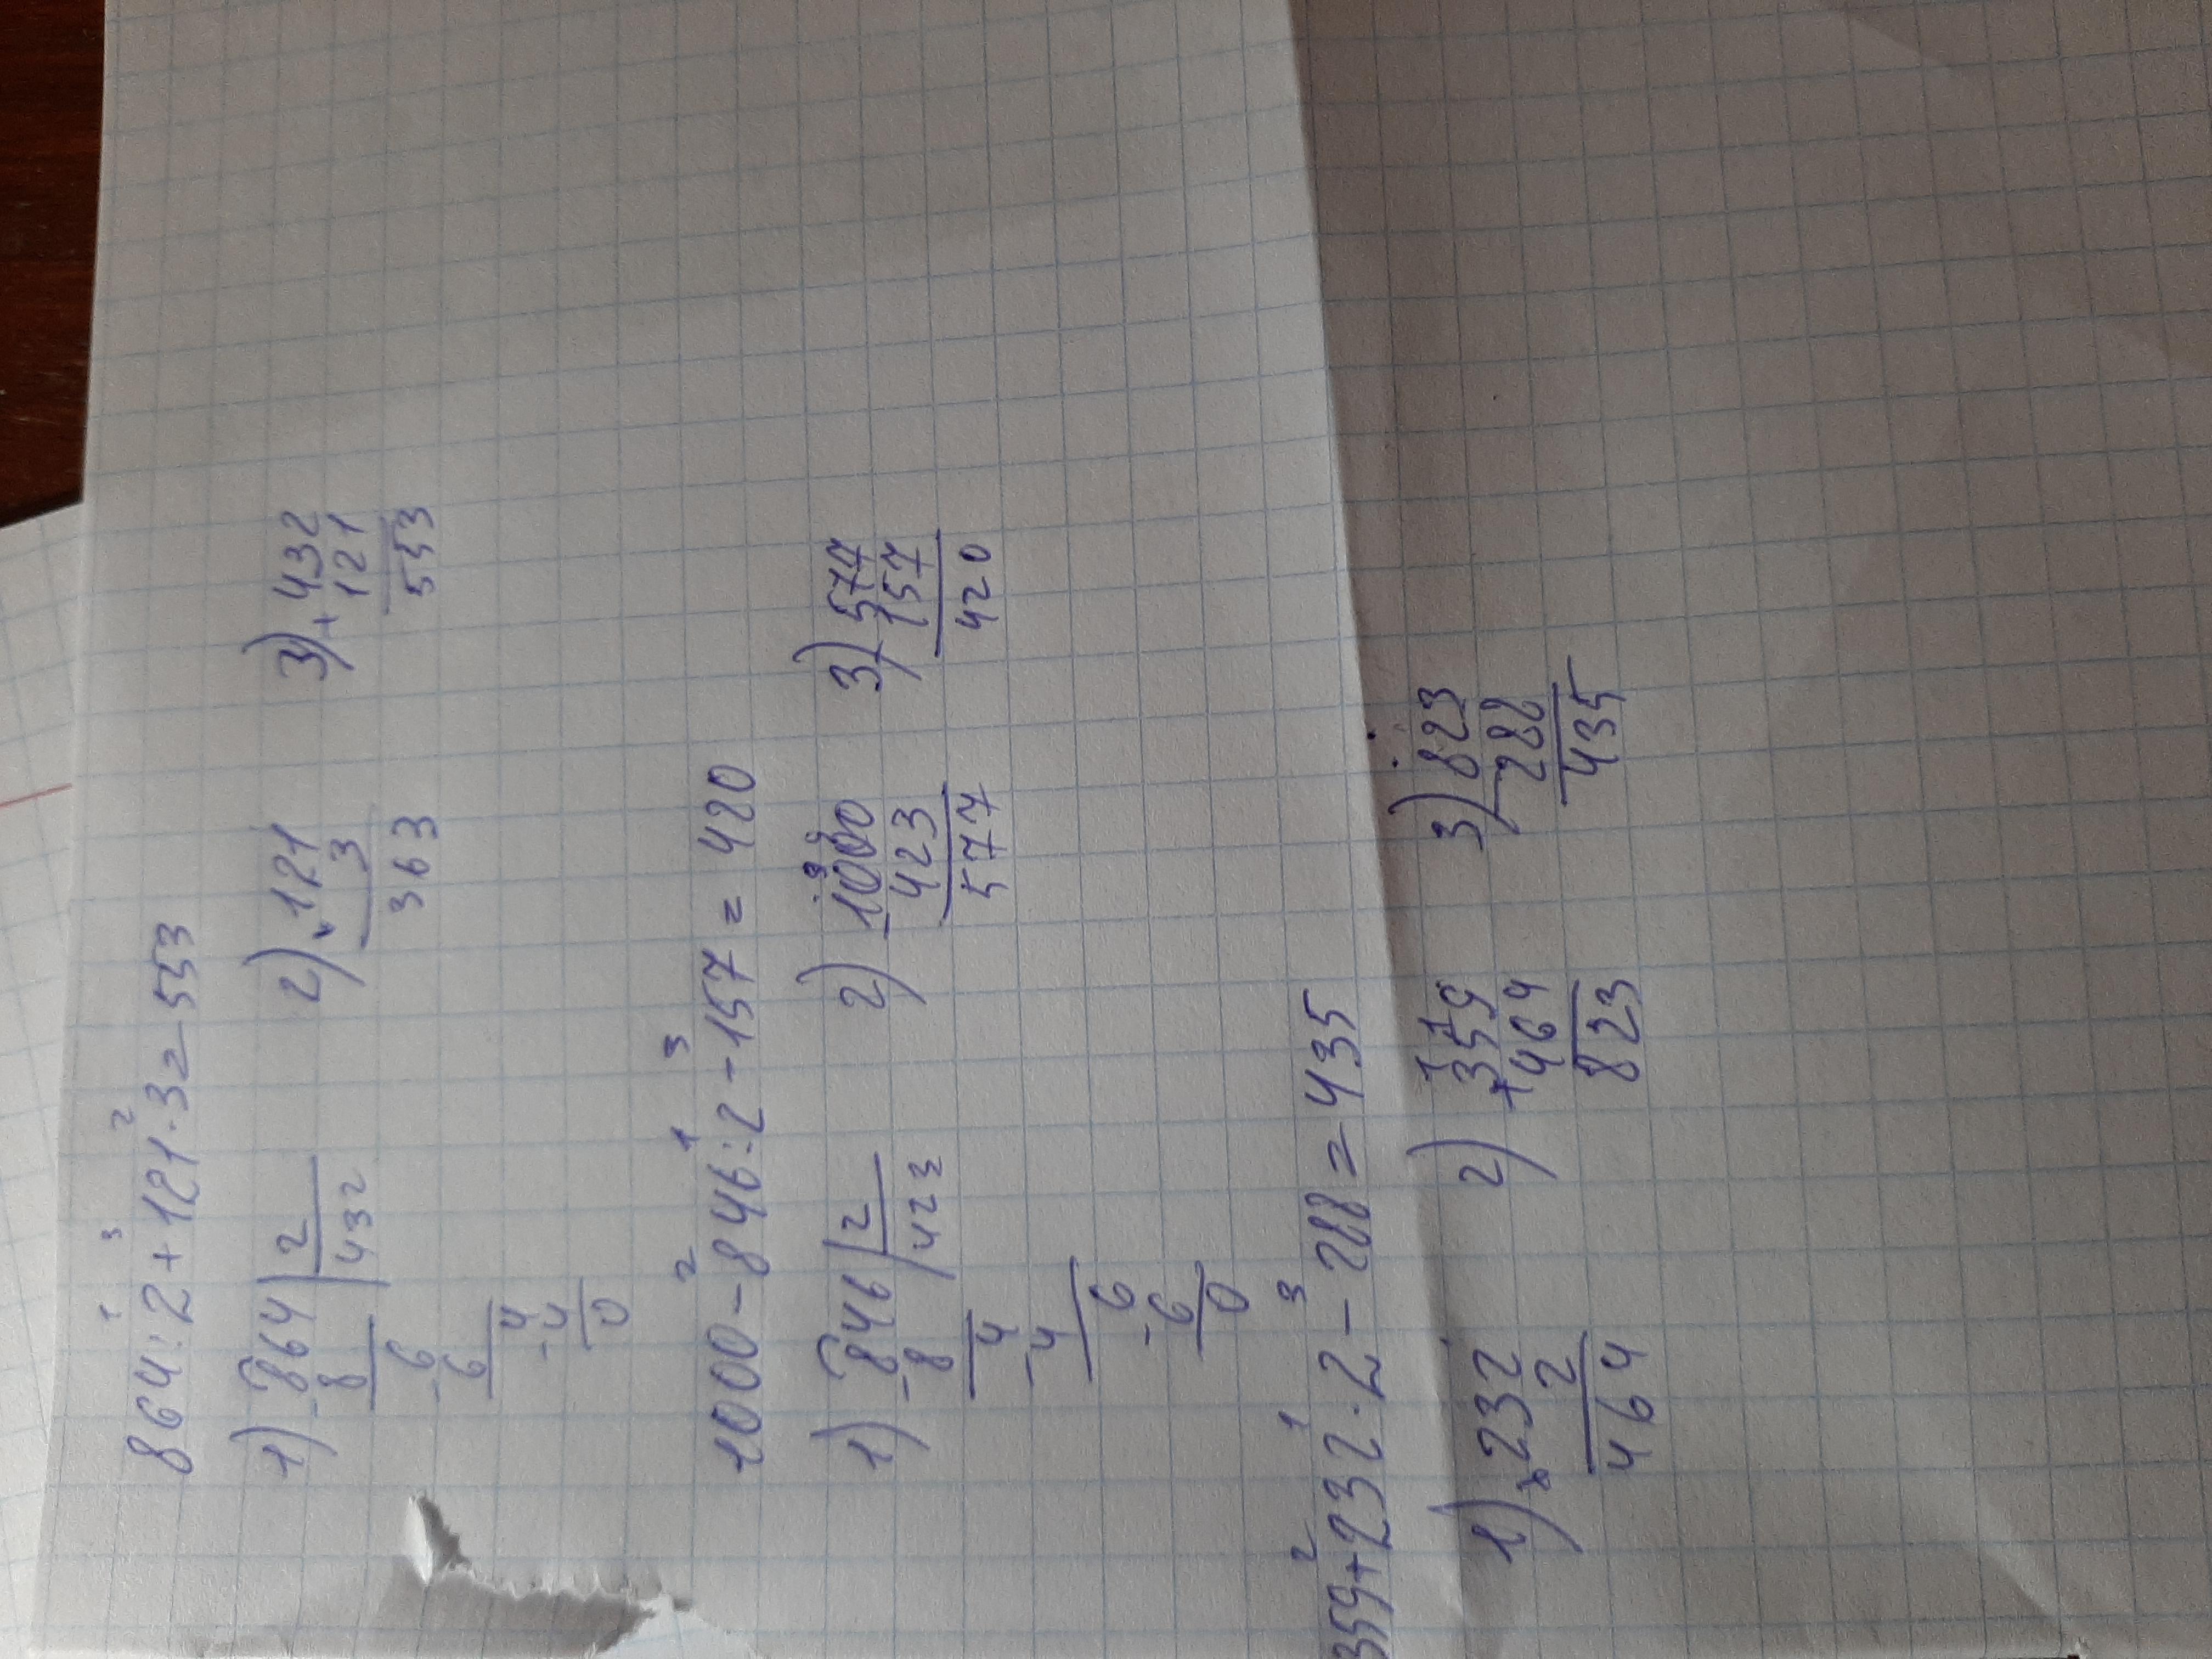 1 3 2
864:2+121·3=553
1) -864|2 2) ×121 3) +432
8 432 3 121
-6 363 553
6
-4
4
0
2 1 3
1000-846:2-157=420
1) -846|2 2) -1000 3) -577
8 423 423 157
4 577 420
-4
6
-6
0
2 1 3
359+232·2-288=435
1) ×232 2) +359 3) -823
2 464 288
464 823 435